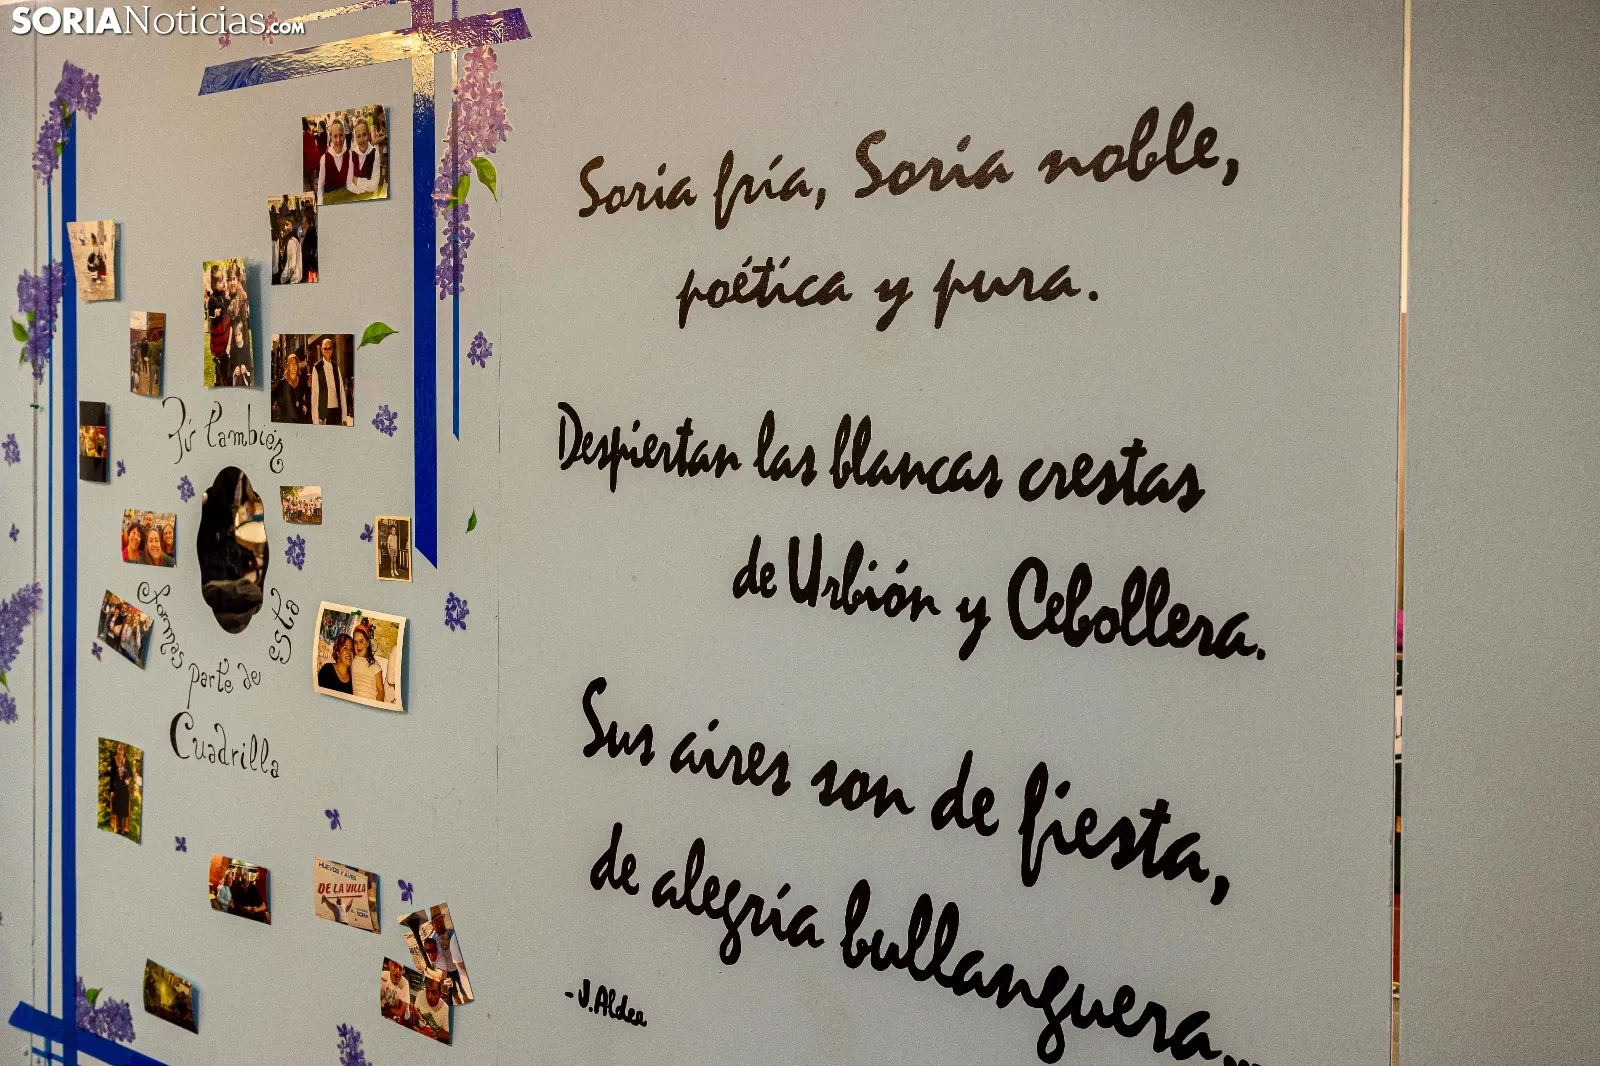 SORIANoticias.com
Tú también
formas parte de esta
Cuadrilla
HUEVOS Y AVES
DE LA VILLA
Soria fría, Soria noble,
poética y pura.
Despiertan las blancas crestas
de Urbión y Cebollera.
Sus aires son de fiesta,
de alegría bullanguera...
-J.Aldea